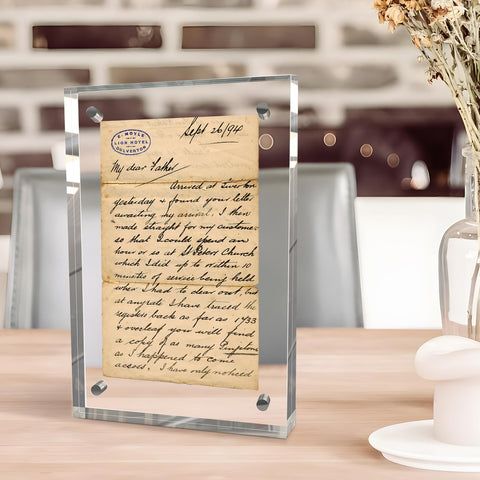 E. MOYLE
LION HOTEL
DULVERTON
Sept 26/94
My dear Father
Arrived at Tiverton
yesterday & found your letter
awaiting my arrival. I then
made straight for my customers
so that I could spend an
hour or so at St Peters Church
which I did up to within 10
minutes of service being held
when I had to clear out, but
at anyrate I have traced the
registers back as far as 1733
& overleaf you will find
a copy of as many Pengelons
as I happened to come
across. I have only noticed